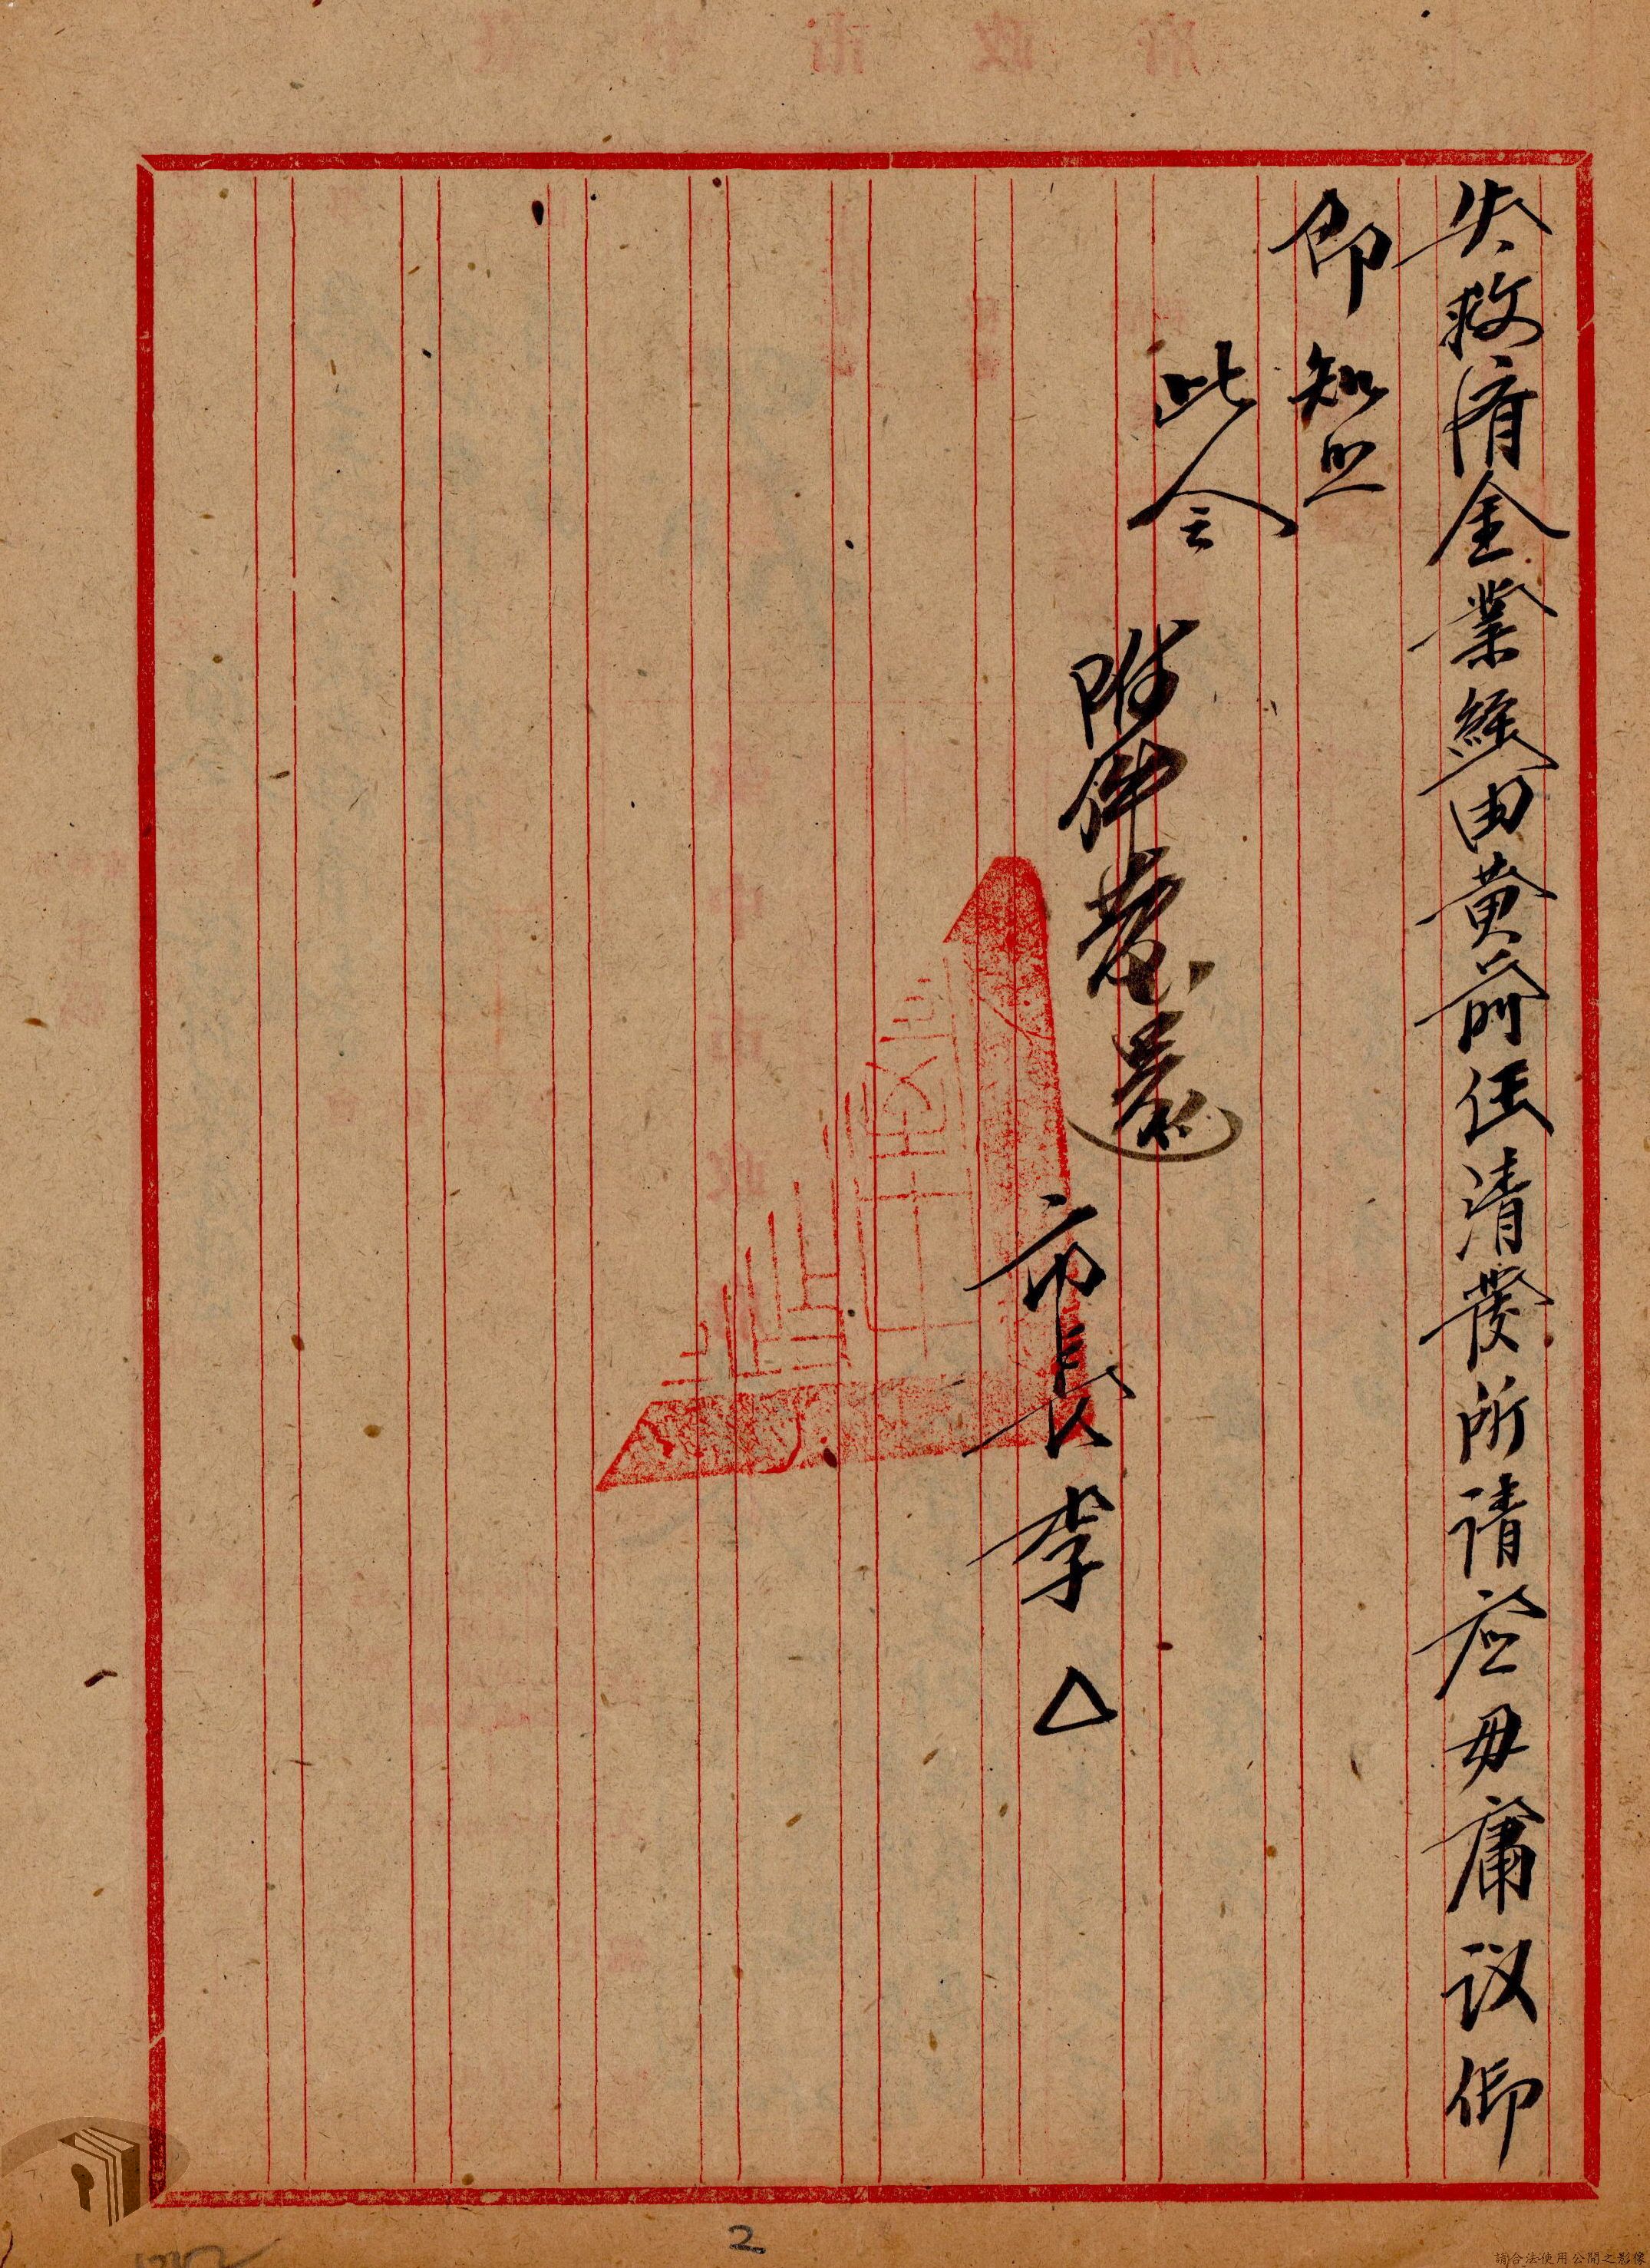 失救濟金業經由黃前任清發所請應毋庸议仰
即知照
此令
附件發還
市長李△
2
請合法使用公開之影像